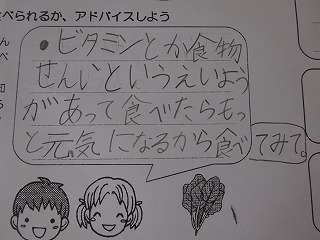 べられるか、アドバイスしよう
ビタミンとか食物
せんいというえいよう
があって食べたらもっ
と元気になるから食べてみて。